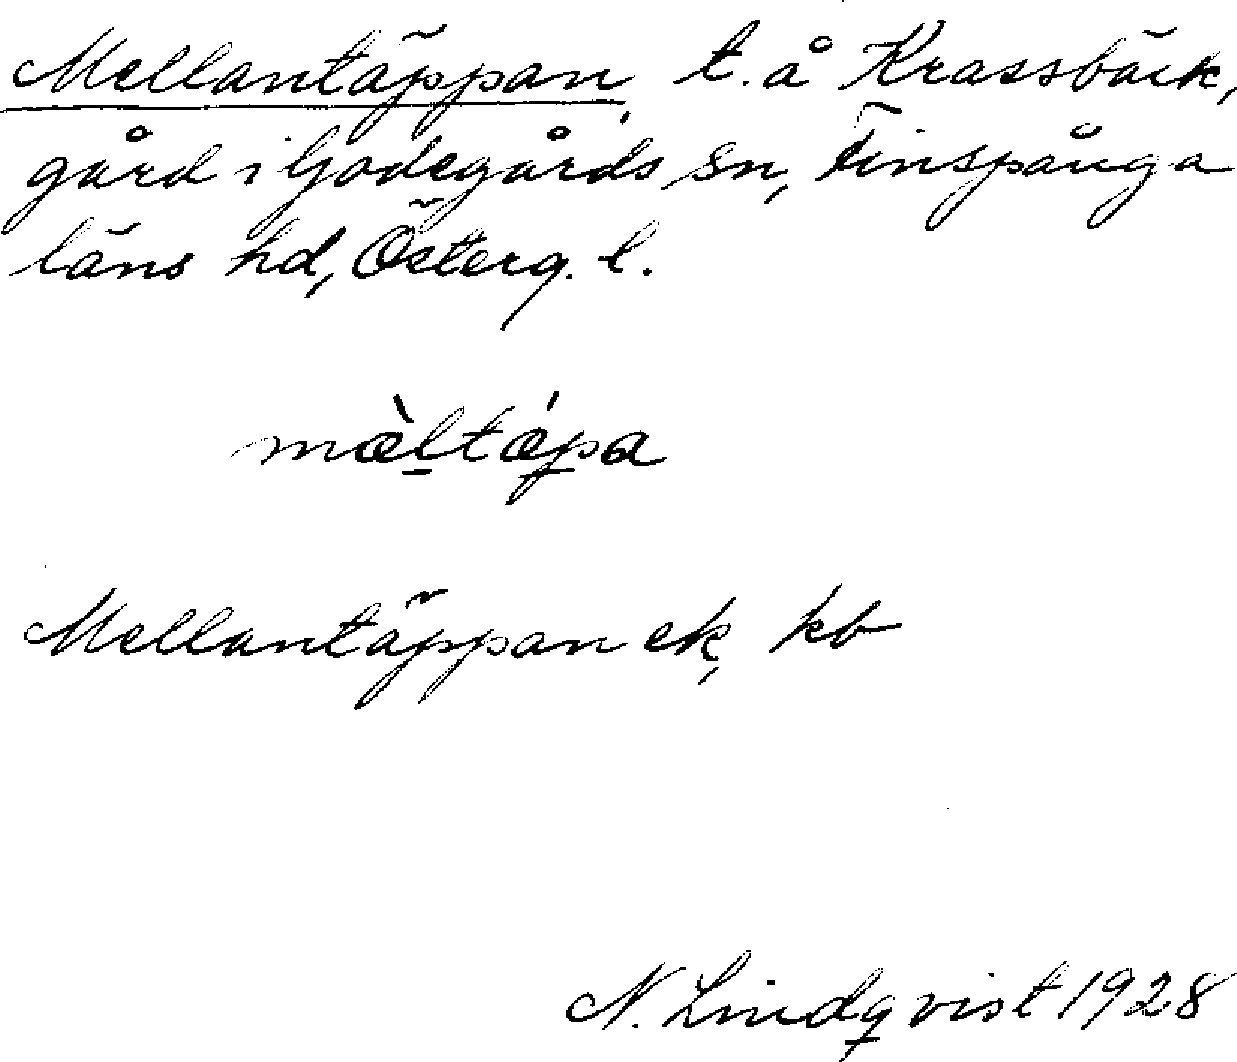 Mellantäppan, t. å Krassbäck,
gård i Godegårds sn, Finspånga
läns hd, Österg. l.
mæ̀ltǽpa
Mellantäppan ek, kb
N. Lindqvist 1928